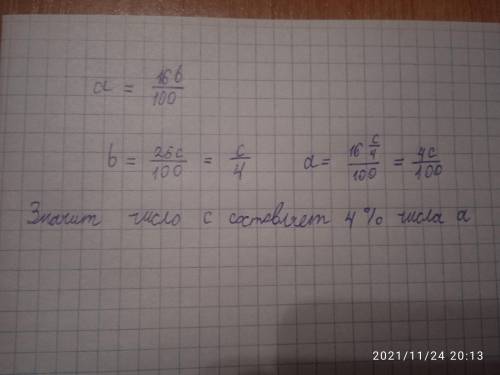 a = 16b/100
b = 25c/100 = c/4 a = 16 c/4/100 = 4c/100
Значит число c составляет 4% числа a
2021/11/24 20:13